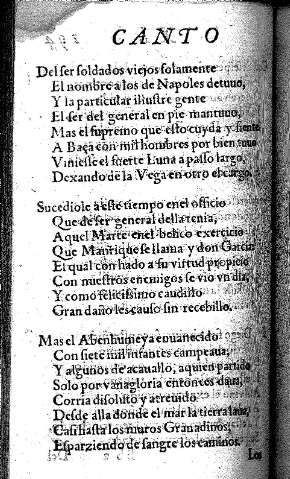 CANTO
Del ser soldados viejos solamente
El nombre a los de Napoles detuuo,
Y la particular illustre gente
El ser del general en pie mantuuo,
Mas el supremo que esto cuyda y siente
A Baça con mil hombres por bien tuuo
Viniesse el fuerte Luna a passo largo,
Dexando de la Vega en otro el cargo.
Sucediole a este tiempo enel officio
Que de ser general della tenia,
Aquel Marte enel belico exercicio
Que Manrique se llama y don Garcia
El qual con hado a su virtud propicio
Con nuestros enemigos se vio vn dia,
Y como felicissimo caudillo
Gran daño les causo sin recebillo.
Mas el Abenhumeya enuanecido
Con siete mil infantes campeaua,
Y algunos de acauallo, aquien partido
Solo por vanagloria entonces daua,
Corria disoluto y atreuido
Desde alla donde el mar la tierra laua,
Casi hasta los muros Granadinos,
Esparziendo de sangre los caminos.
Los